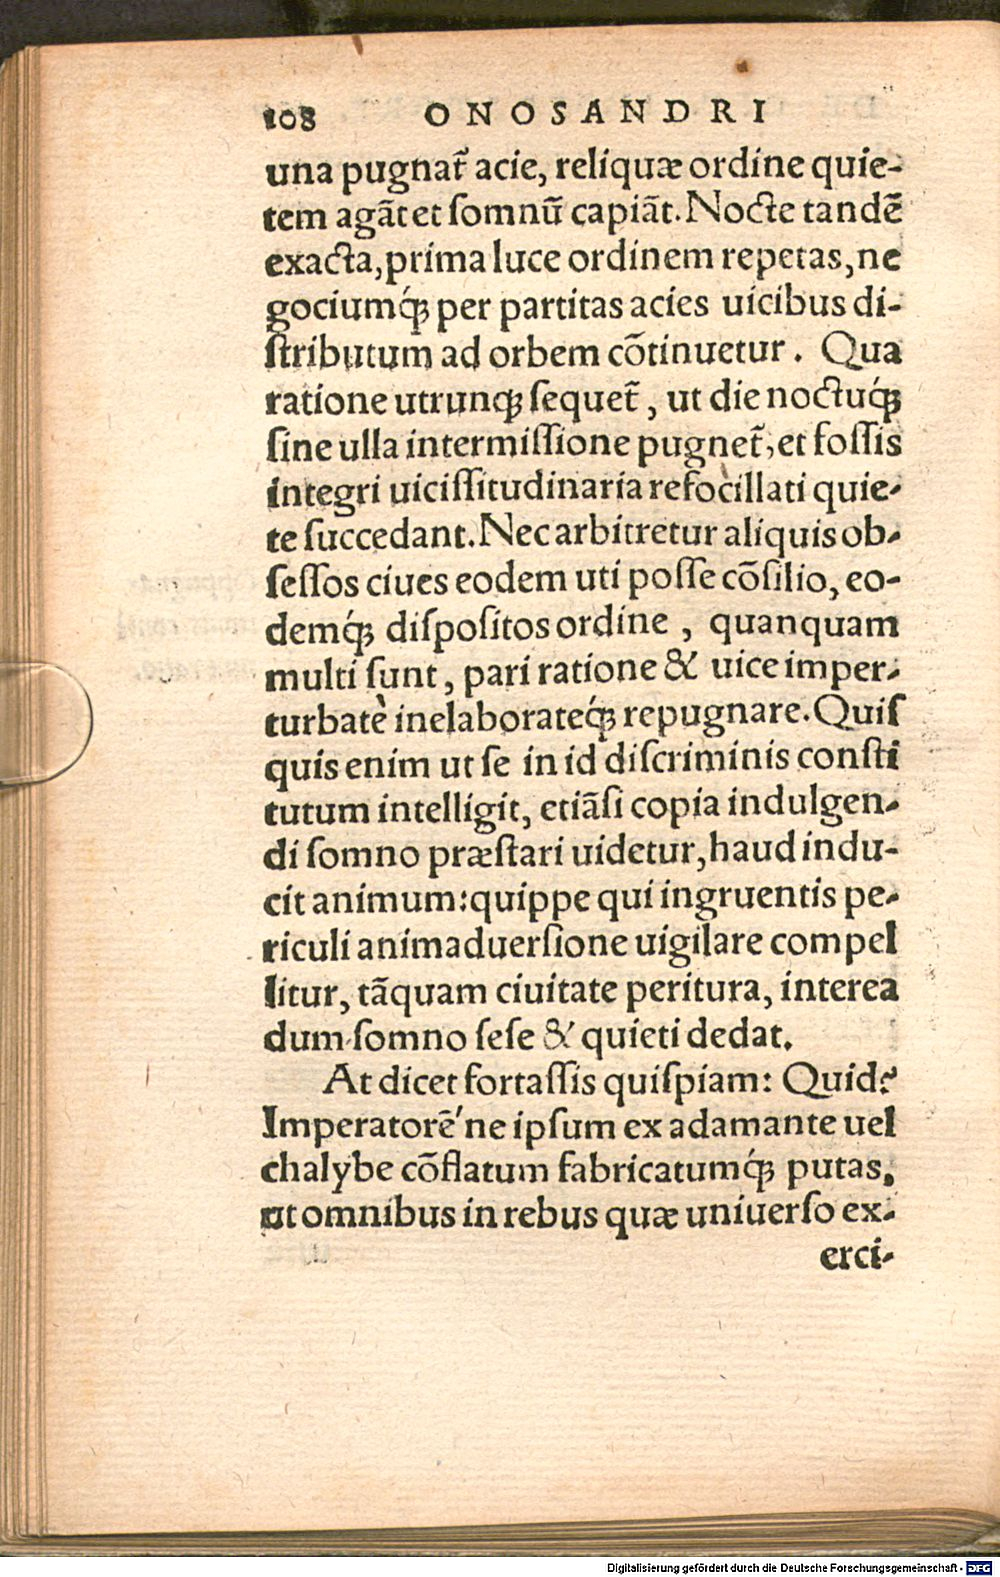 108 ONOSANDRI
una pugnat̃ acie, reliquæ ordine quie-
tem agãt et ſomnũ capiãt. Nocte tandẽ
exacta, prima luce ordinem repetas, ne
gociumq́ꝫ per partitas acies uicibus di-
ſtributum ad orbem cõtinuetur. Qua
ratione utrunqꝫ ſequet̃, ut die noctuq́ꝫ
ſine ulla intermiſſione pugnet̃, et foſſis
integri uiciſſitudinaria refocillati quie-
te ſuccedant. Nec arbitretur aliquis ob-
ſeſſos ciues eodem uti poſſe cõſilio, eo-
demq́ꝫ diſpoſitos ordine, quanquam
multi ſunt, pari ratione & uice imper-
turbatè inelaborateq́ꝫ repugnare. Quiſ
quis enim ut ſe in id diſcriminis conſti
tutum intelligit, etiãſi copia indulgen-
di ſomno præſtari uidetur, haud indu-
cit animum: quippe qui ingruentis pe-
riculi animaduerſione uigilare compel
litur, tãquam ciuitate peritura, interea
dum ſomno ſeſe & quieti dedat.
At dicet fortaſſis quiſpiam: Quid?
Imperatorẽ' ne ipſum ex adamante uel
chalybe cõflatum fabricatumq́ꝫ putas,
ut omnibus in rebus quæ uniuerſo ex-
erci-
Digitalisierung gefördert durch die Deutsche Forschungsgemeinschaft - DFG